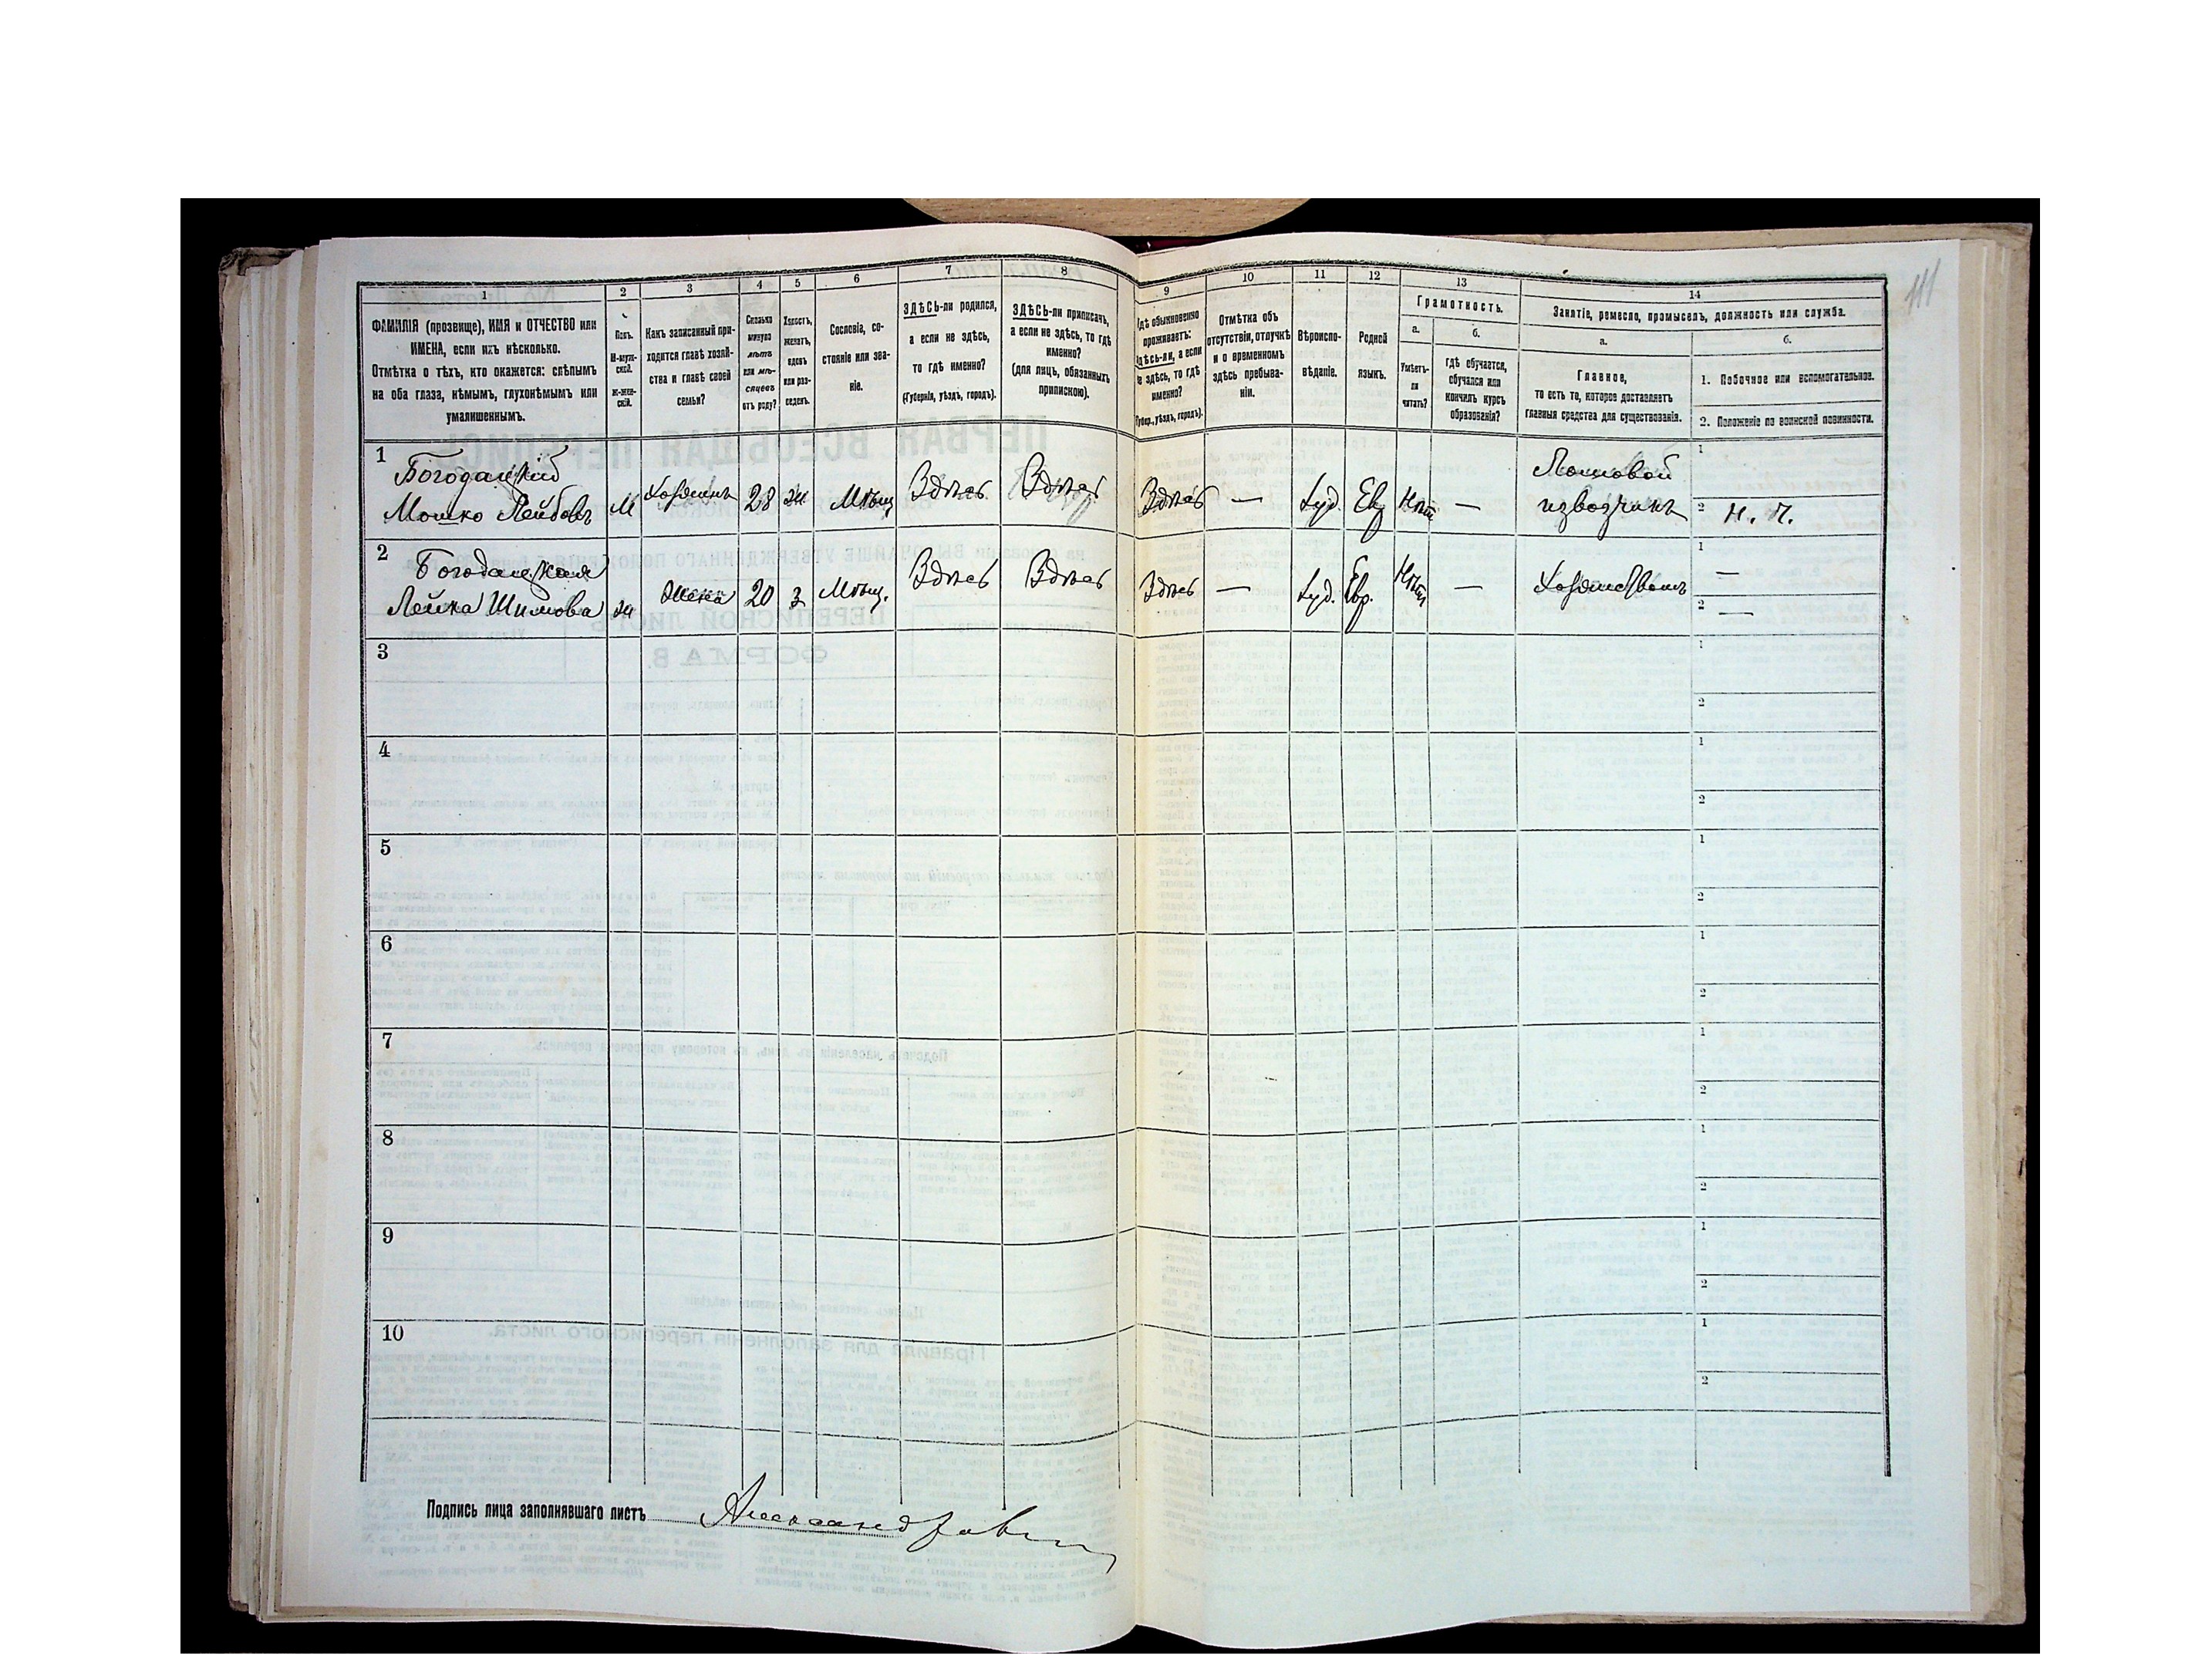 111
1
ФАМИЛІЯ (прозвище), ИМЯ и ОТЧЕСТВО или
ИМЕНА, если ихъ нѣсколько.
Отмѣтка о тѣхъ, кто окажется: слѣпымъ
на оба глаза, нѣмымъ, глухонѣмымъ или
умалишеннымъ.
2
Полъ.
М-муж-
ской.
Ж-жен-
скій.
3
Какъ записанный при-
ходится главѣ хозяй-
ства и главѣ своей
семьи?
4
Сколько
минуло
лѣтъ
или мѣ-
сяцевъ
отъ роду?
5
Холостъ,
женатъ,
вдовъ
или раз-
веденъ.
6
Сословіе, со-
стояніе или зва-
ніе.
7
ЗДѢСЬ-ли родился,
а если не здѣсь,
то гдѣ именно?
(Губернія, уѣздъ, городъ).
8
ЗДѢСЬ-ли приписанъ,
а если не здѣсь, то гдѣ
именно?
(для лицъ, обязанныхъ
припискою).
9
Гдѣ обыкновенно
проживаетъ:
здѣсь-ли, а если
не здѣсь, то гдѣ
именно?
(Губер., уѣздъ, городъ).
10
Отмѣтка объ
отсутствіи, отлучкѣ
и о временномъ
здѣсь пребыва-
ніи.
11
Вѣроиспо-
вѣданіе.
12
Родной
языкъ.
13
Грамотность.
а.
Умѣетъ-
ли
читать?
б.
гдѣ обучается,
обучался или
кончилъ курсъ
образованія?
14
Занятіе, ремесло, промыселъ, должность или служба.
а.
Главное,
то есть то, которое доставляетъ
главныя средства для существованія.
б.
1. Побочное или вспомогательное.
2. Положеніе по воинской повинности.
1
Мошко Лейбовъ
М
Хозяинъ
28
ж
Мѣщ
Здѣсь
Здѣсь
Здѣсь
—
Іуд.
Евр
Нѣтъ
—
Ломовой
извозчикъ
1
2 Н. Ч.
2
Лейка Шимова
ж
Жена
20
з
Мѣщ.
Здѣсь
Здѣсь
Здѣсь
—
Іуд.
Евр.
Нѣтъ
—
1 —
2 —
3
1
2
4
1
2
5
1
2
6
1
2
7
1
2
8
1
2
9
1
2
10
1
2
Подпись лица заполнявшаго листъ